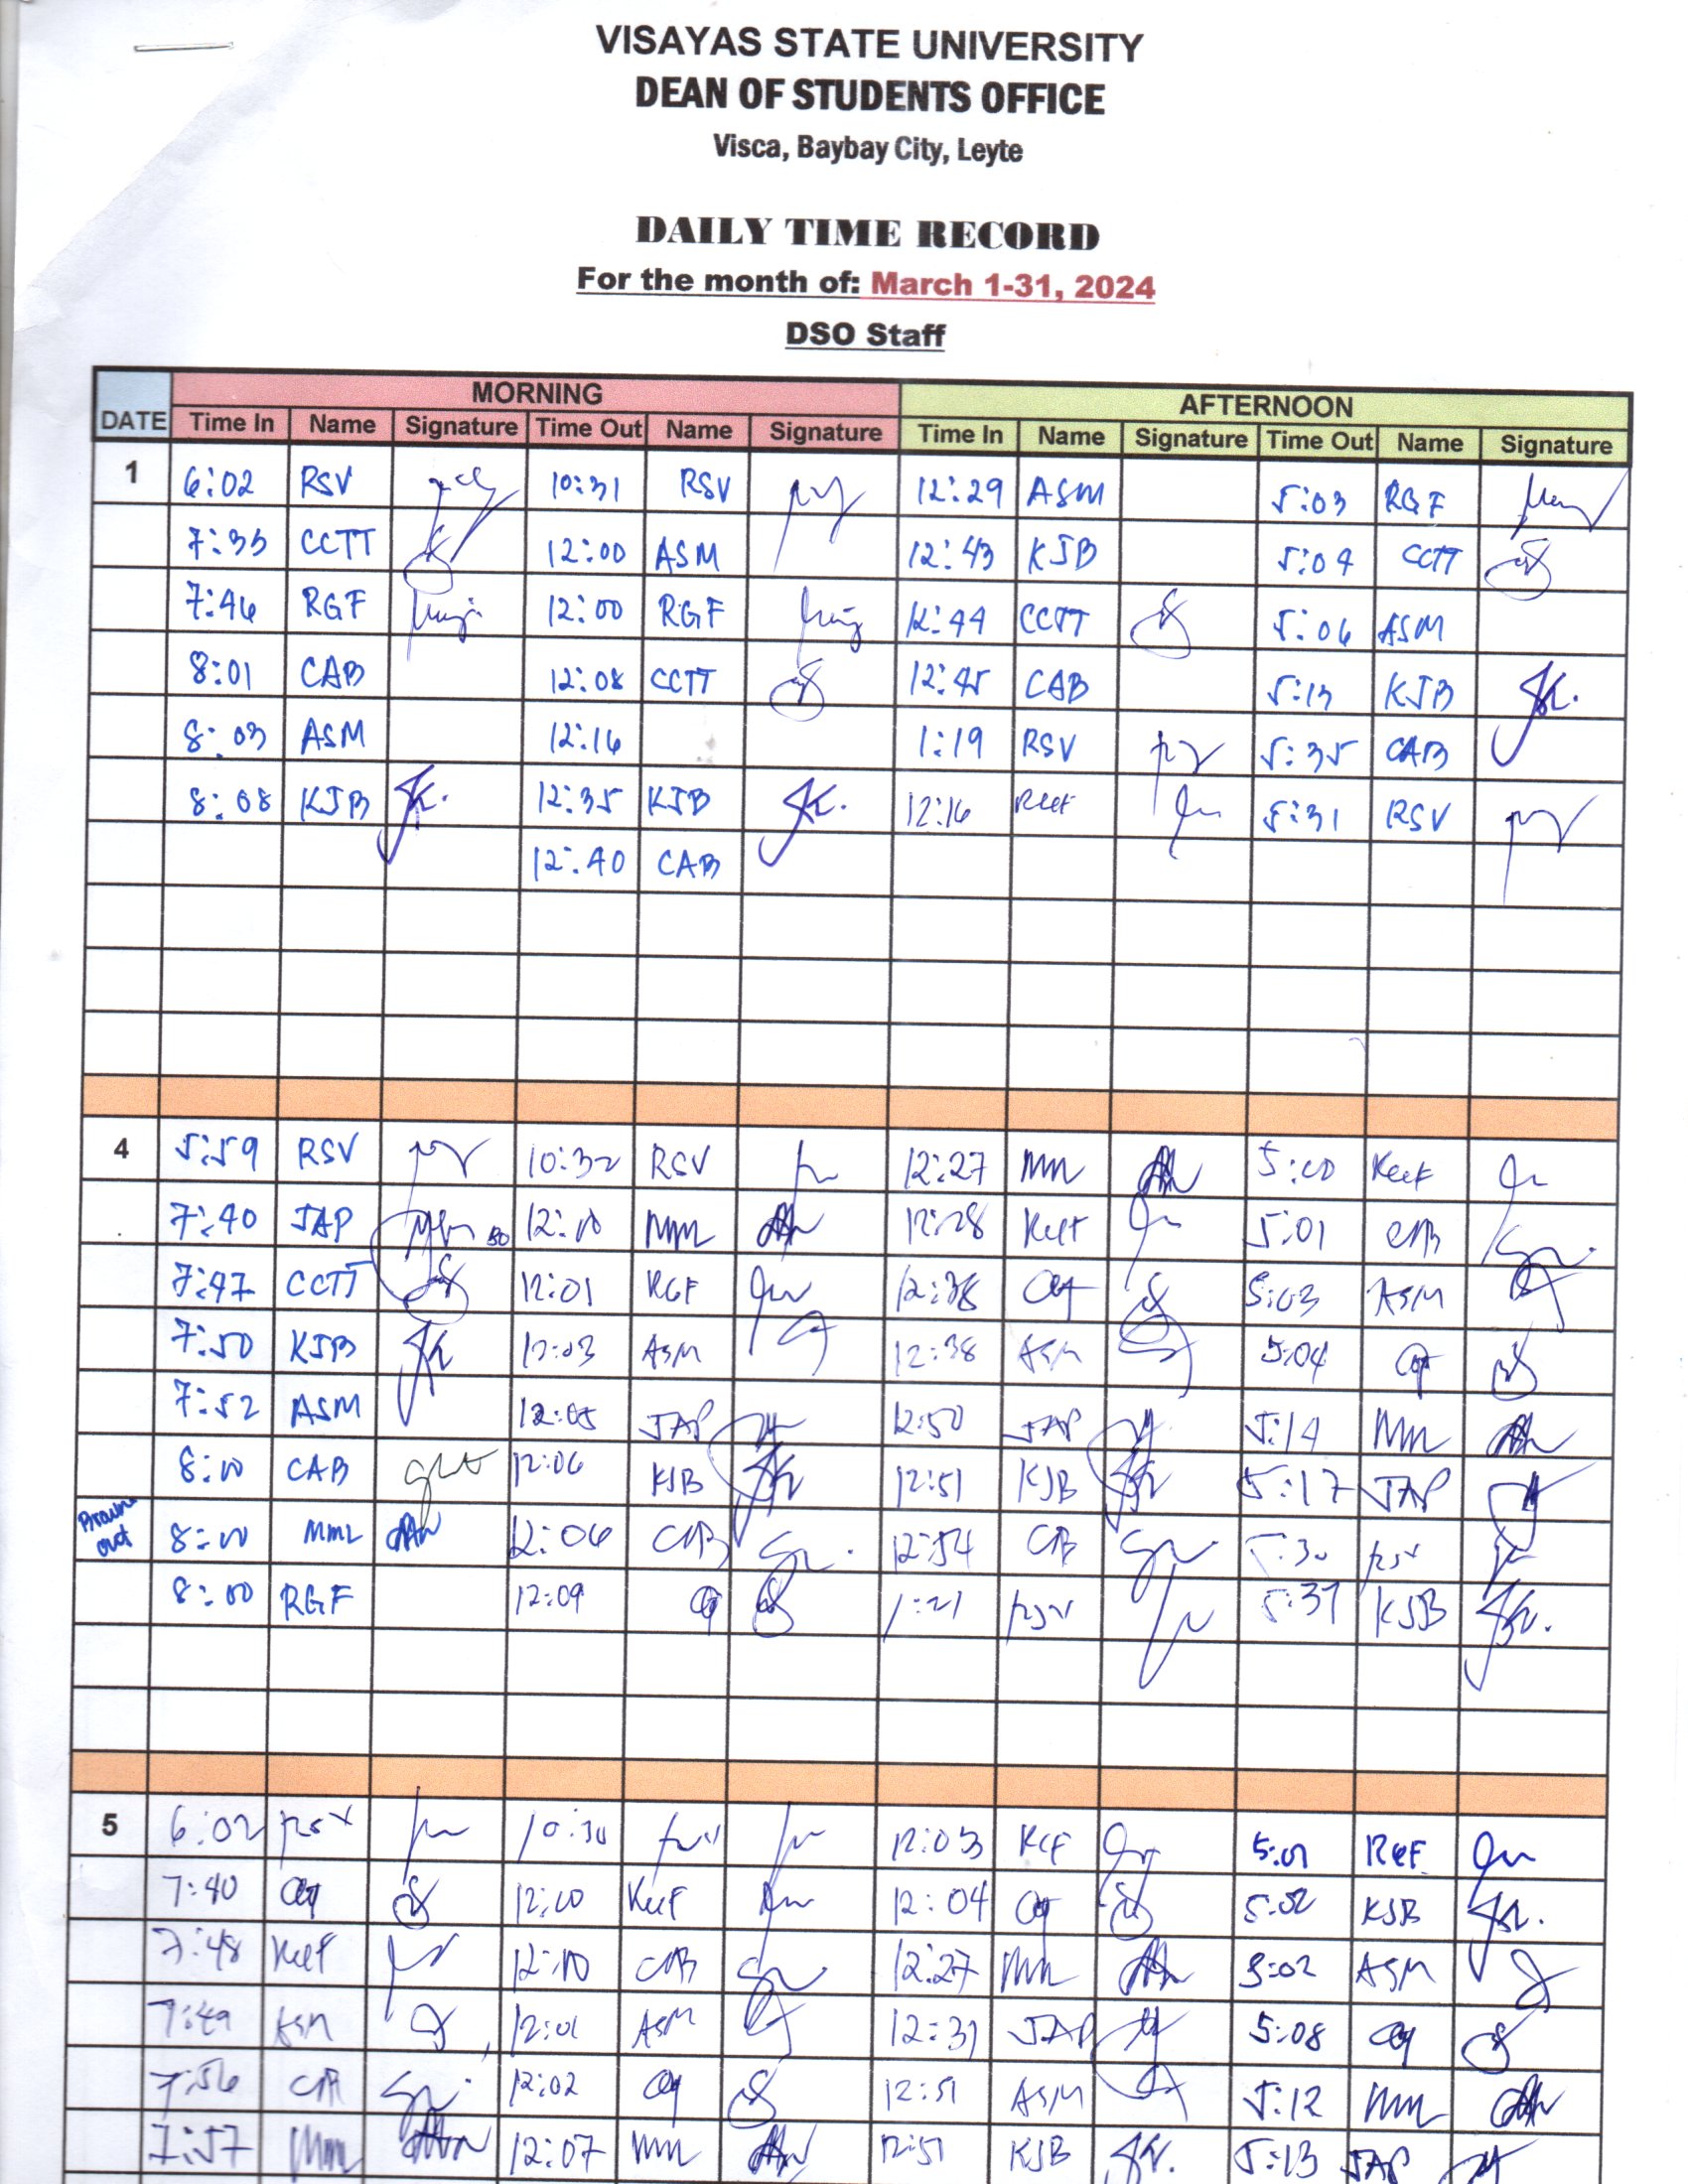 VISAYAS STATE UNIVERSITY
DEAN OF STUDENTS OFFICE
Visca, Baybay City, Leyte
DAILY TIME RECORD
For the month of: March 1-31, 2024
DSO Staff
DATE MORNING AFTERNOON
Time In Name Signature Time Out Name Signature Time In Name Signature Time Out Name Signature
1 6:02 RSV 10:31 RSV 12:29 ASM 5:03 RGF
7:35 CCTT 12:00 ASM 12:43 KJB 5:04 CCTT
7:46 RGF 12:00 RGF 12:44 CCTT 5:06 ASM
8:01 CAB 12:08 CCTT 12:45 CAB 5:13 KJB
8:03 ASM 12:16 1:19 RSV 5:35 CAB
8:08 KJB 12:35 KJB 12:16 5:31 RSV
12:40 CAB
4 5:59 RSV 10:32 RSV 12:27 MM 5:00
7:40 JAP 12:00 MM 12:28 5:01 CAB
7:47 CCTT 12:01 RGF 12:38 5:03 ASM
7:50 KJB 12:03 ASM 12:38 ASM 5:04
7:52 ASM 12:05 JAP 12:50 JAP 5:14 MM
8:00 CAB 12:06 KJB 12:51 KJB 5:17 JAP
out 8:00 MML 12:06 CAB 12:54 CAB 5:30 RSV
8:00 RGF 12:09 1:21 RSV 5:37 KJB
5 6:02 RSV 10:30 12:03 RGF 5:01 RGF
7:40 12:00 12:04 5:02 KJB
7:48 12:00 CAB 12:27 MM 5:02 ASM
7:49 ASM 12:01 ASM 12:31 JAP 5:08
7:56 CAB 12:02 12:51 ASM 5:12 MM
7:57 MM 12:07 MM 12:51 KJB 5:13 JAP